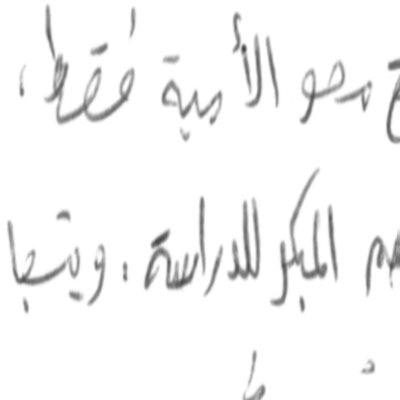 محو الأمية فقط،
المبكر للدراسة. ويتجا